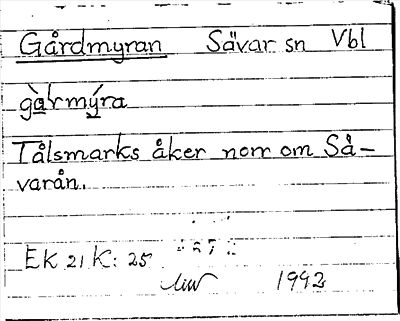 Gårdmyran Sävar sn Vbl
gàrmýra
Tålsmarks åker norr om Så-
varån.
EK 21 K: 25
1992